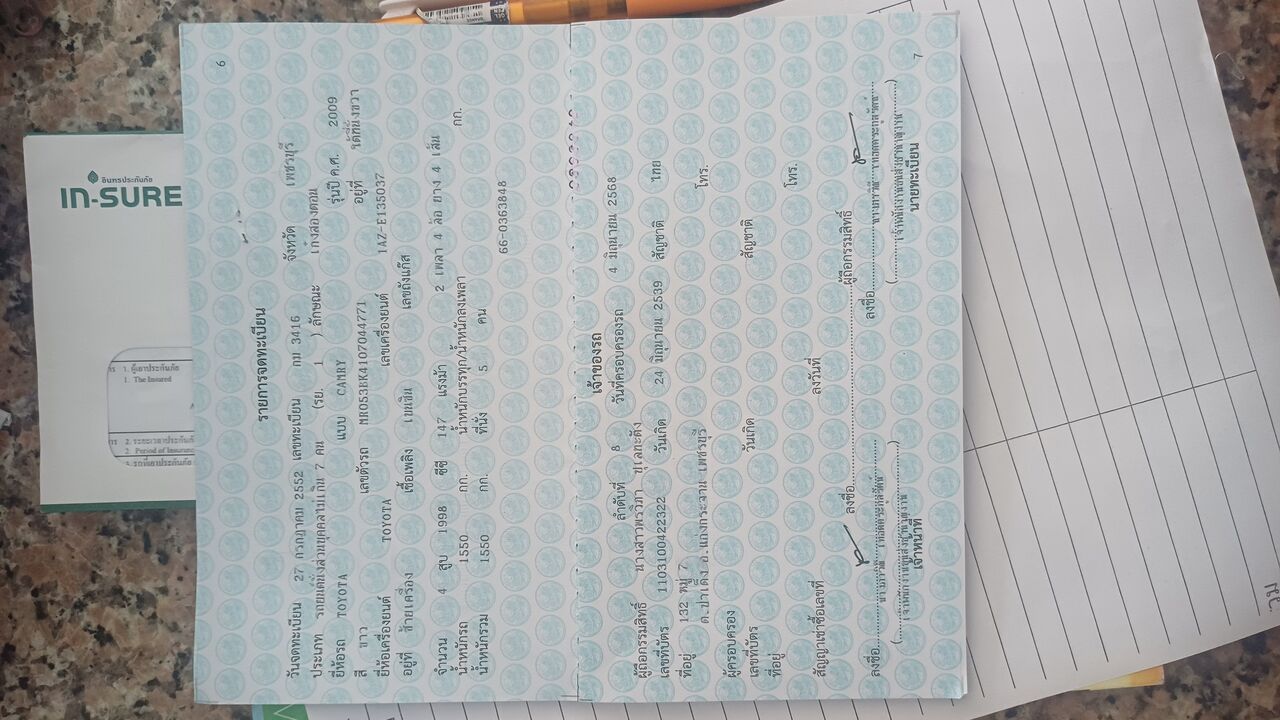 อินทรประกันภัย
IN-SURE
1. ผู้เอาประกันภัย
1. The Insured
2. Period of Insurance
6
รายการจดทะเบียน
วันจดทะเบียน 27 กรกฎาคม 2552 เลขทะเบียน กม 3416 จังหวัด เพชรบุรี
ประเภท รถยนต์นั่งส่วนบุคคลไม่เกิน 7 คน (รย. 1 ) ลักษณะ เก๋งสองตอน
ยี่ห้อรถ TOYOTA แบบ CAMRY รุ่นปี ค.ศ. 2009
สี ขาว เลขตัวรถ MR053BK4107044771 อยู่ที่ ใต้ที่นั่งขวา
ยี่ห้อเครื่องยนต์ TOYOTA เลขเครื่องยนต์ 1AZ-E135037
อยู่ที่ ซ้ายเครื่อง เชื้อเพลิง เบนซิน เลขถังแก๊ส
จำนวน 4 สูบ 1998 ซีซี 147 แรงม้า 2 เพลา 4 ล้อ ยาง 4 เส้น
น้ำหนักรถ 1550 กก. น้ำหนักบรรทุก/น้ำหนักลงเพลา กก.
น้ำหนักรวม 1550 กก. ที่นั่ง 5 คน
66-0363848
เจ้าของรถ
ลำดับที่ 8 วันที่ครอบครองรถ 4 มิถุนายน 2568
ผู้ถือกรรมสิทธิ์ นางสาวพรวิภา
เลขที่บัตร 1103100422322 วันเกิด 24 มิถุนายน 2539 สัญชาติ ไทย
ที่อยู่ 132 หมู่ 7 โทร.
ต.ป่าเด็ง อ.แก่งกระจาน เพชรบุรี
ผู้ครอบครอง
เลขที่บัตร วันเกิด สัญชาติ
ที่อยู่ โทร.
สัญญาเช่าซื้อเลขที่ ลงวันที่
ลงชื่อ ผู้ถือกรรมสิทธิ์
ลงชื่อ ลงชื่อ
เจ้าหน้าที่ นายทะเบียน
7